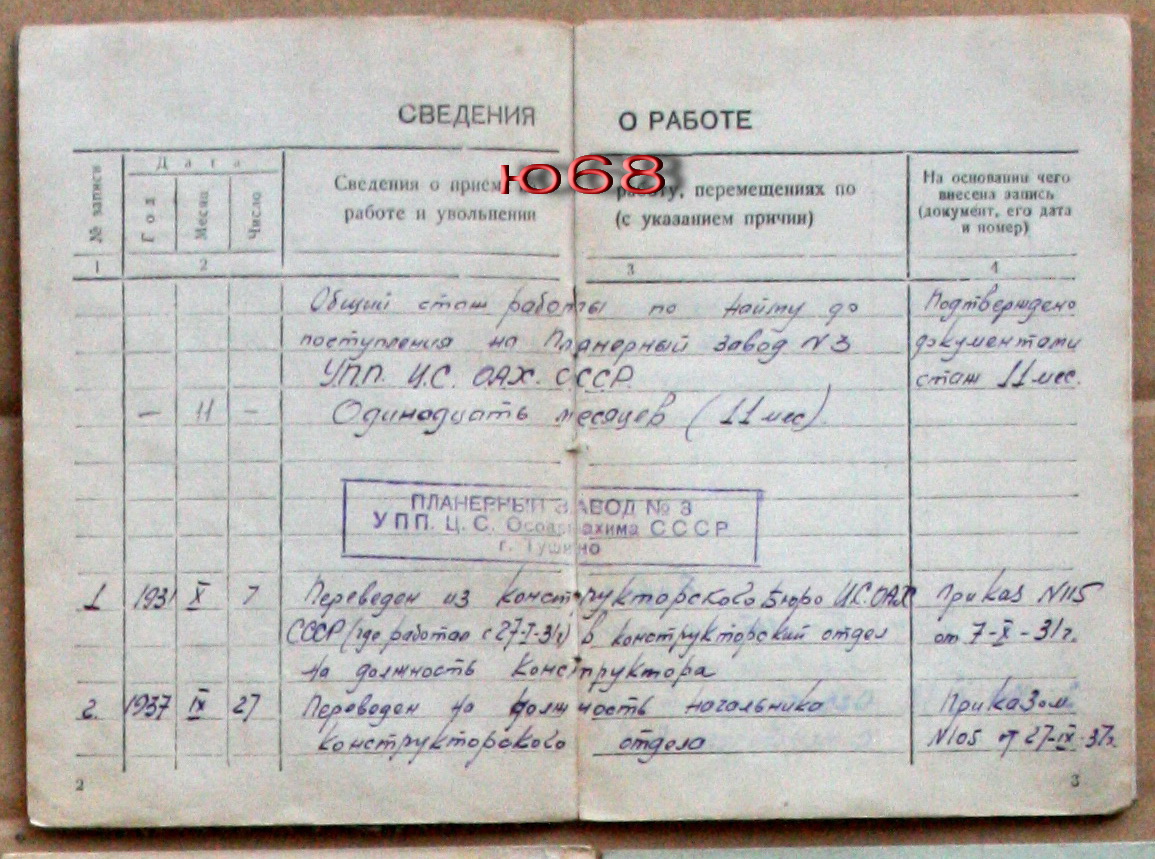 СВЕДЕНИЯ О РАБОТЕ
ю68
№ записи
Дата
Год
Месяц
Число
Сведения о прием
работу, перемещениях по
работе и увольнении
(с указанием причин)
На основании чего
внесена запись
(документ, его дата
и номер)
1 2 3 4
Общий стаж работы по найму до Подтверждено
поступления на Планерный завод N3 документами
У.П.П. Ц.С. ОАХ. СССР. стаж 11 мес.
— 11 — Одинодцать месяцев (11 мес).
ПЛАНЕРНЫЙ ЗАВОД № 3
УПП. Ц. С. Осоавиахима СССР
г. Тушино
1 1931 X 7 Переведен из конструкторского Бюро Ц.С. ОАХ Приказ N115
СССР (где работал с 27-I-31г) в конструкторский отдел от 7-X-31г.
на должность конструктора
2. 1937 IX 27 Переведен на должность начальника Приказом
конструкторского отдела N105 от 27-IX-37г.
2 3